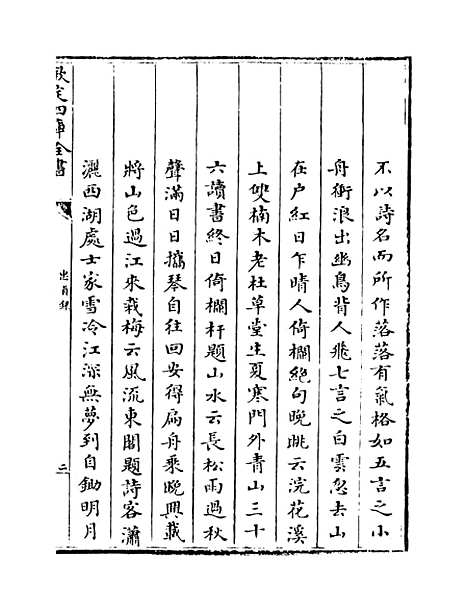 不以詩名而所作落落有氣格如五言之小
舟衝浪出幽鳥背人飛七言之白雲忽去山
在户紅日乍晴人倚欄絶句晚眺云浣花溪
上㛐楠木老杜草堂生夏寒門外青山三十
六讀書終日倚欄杆題山水云長松雨過秋
聲滿日日攜琴自往回安得扁舟乘晚興載
將山色過江來栽梅云風流東閣題詩客瀟
灑西湖處士家雪冷江深無夢到自鋤明月
欽定四庫全書
忠貞録
二